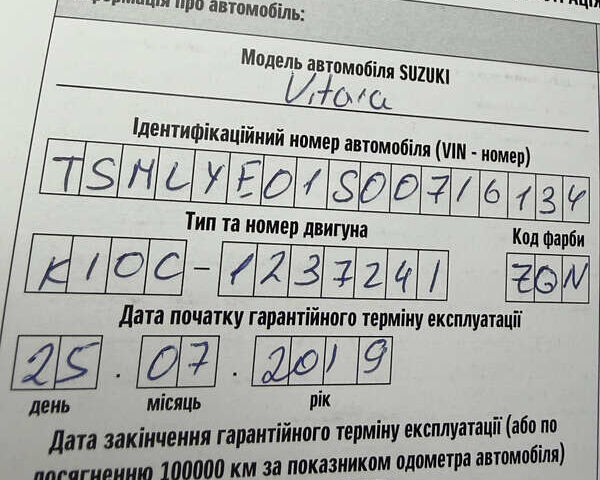 формація про автомобіль:
Модель автомобіля SUZUKI
Vitara
Ідентифікаційний номер автомобіля (VIN - номер)
TSMLYE01S00716134
Тип та номер двигуна
Код фарби
K10C-1237241
ZQN
Дата початку гарантійного терміну експлуатації
25.07.2019
день місяць рік
Дата закінчення гарантійного терміну експлуатації (або по
досягненню 100000 км за показником одометра автомобіля)